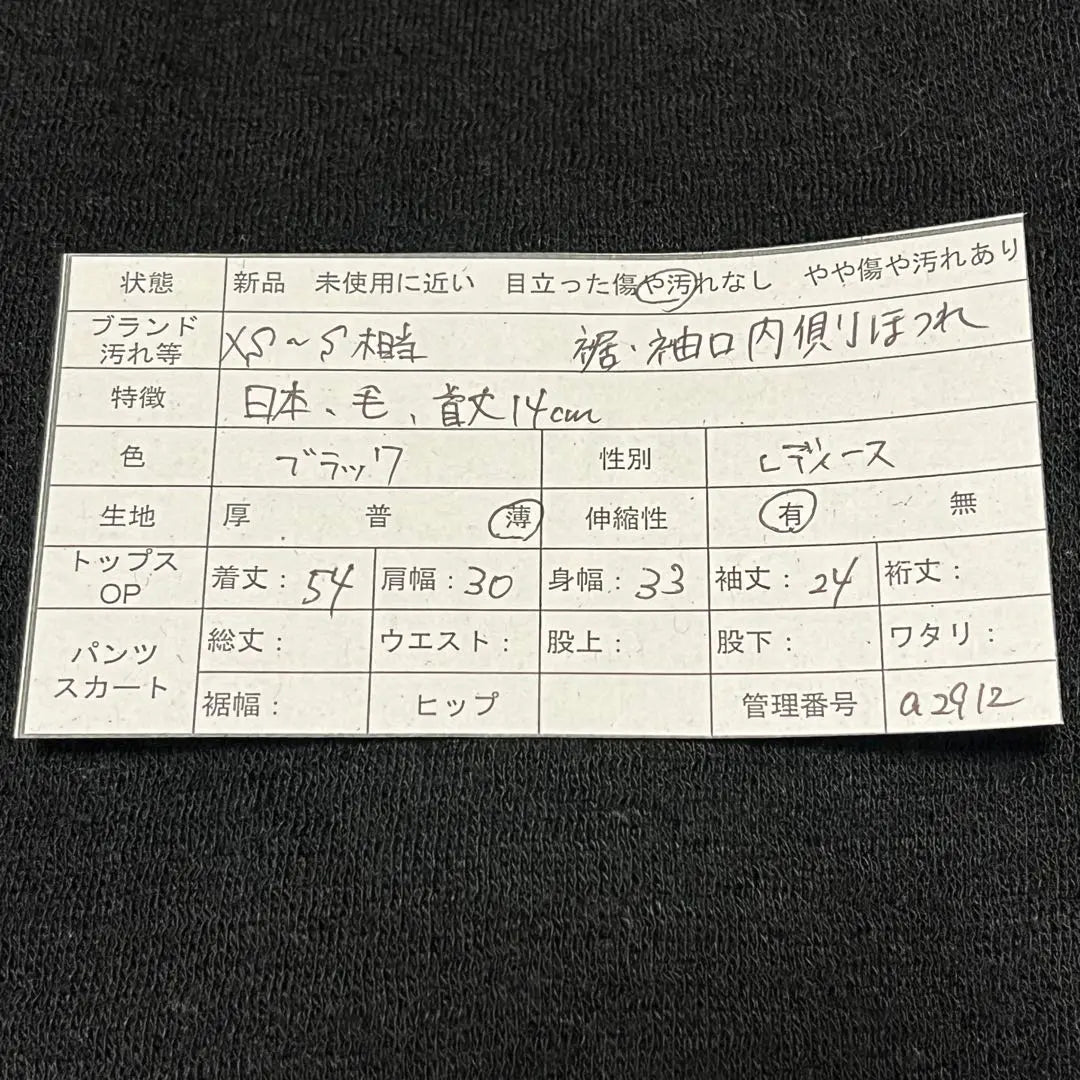 状態 新品 未使用に近い 目立った傷や汚れなし やや傷や汚れあり
ブランド
汚れ等 XS～S相当 裾・袖口内側りほつれ
特徴 日本、毛、首丈14cm
色 ブラック 性別 レディース
生地 厚 普 薄 伸縮性 有 無
トップス
OP 着丈：54 肩幅：30 身幅：33 袖丈：24 裄丈：
パンツ
スカート 総丈： ウエスト： 股上： 股下： ワタリ：
裾幅： ヒップ 管理番号 a2912